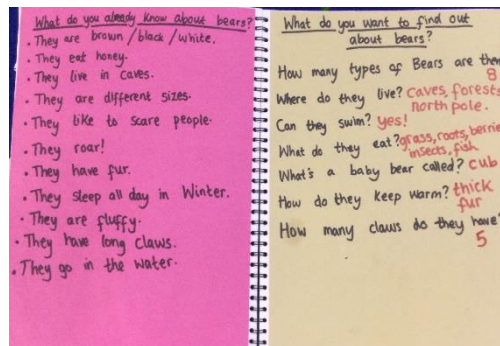 What do you already know about bears?
• They are brown / black / white.
• They eat honey.
• They live in caves.
• They are different sizes.
• They like to scare people.
• They roar!
• They have fur.
• They sleep all day in Winter.
• They are fluffy.
• They have long claws.
• They go in the water.
What do you want to find out
about bears?
How many types of Bears are ther
8
Where do they live? caves, forests
north pole.
Can they swim? yes!
What do they eat? grass, roots, berrie
insects, fish
What's a baby bear called? cub
How do they keep warm? thick
fur
How many claws do they have?
5